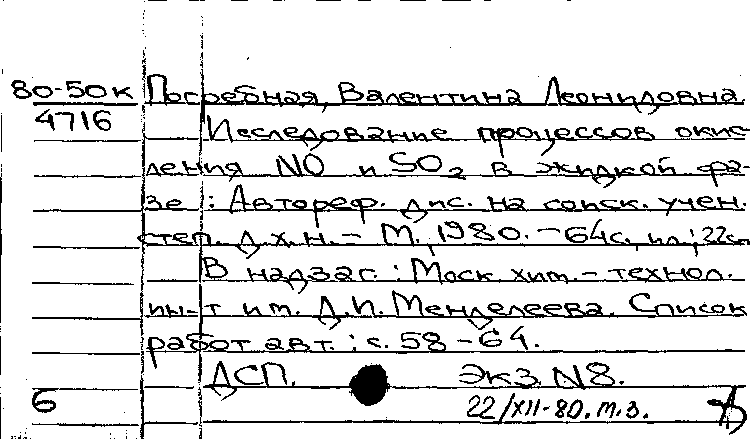 80-50к Погребная, Валентина Леонидовна.
4716 Исследование процессов окис-
ления NO и SO₂ в жидкой фа-
зе : Автореф. дис. на соиск. учен.
степ. д.х.н. - М., 1980. - 64с., ил.; 22см
В надзаг. : Моск. хим.-технол.
ин-т им. Д.И. Менделеева. Список
работ авт. : с. 58-64.
ДСП. Экз. N8.
6 22/XII-80. т.з.